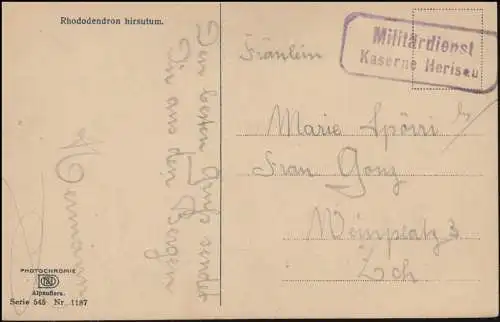 Rhododendron hirsutum.
Den besten Gruss sendet
Dir aus den Bergen
Hermann
PHOTOCHROMIE
Alpauflora.
Serie 545 Nr. 1187
Militärdienst
Kaserne Herisau
Fräulein
Marie Spörri
Frau Ganz
Weinplatz 3
Zch